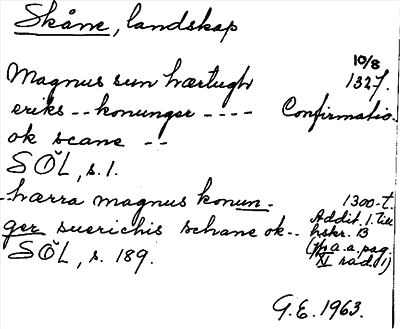 Skåne, landskap
10/8
Magnus sun hærtugh 1327.
eriks -- konunger ---- Confirmatio.
ok scane --
SÖL, s. 1.
-- hærra magnus konun- 1300-t.
ger suerichis schane ok -- Addit. 1. till
hskr. B
SÖL, s. 189. a.a. pag.
XI rad 1)
G.E. 1963.